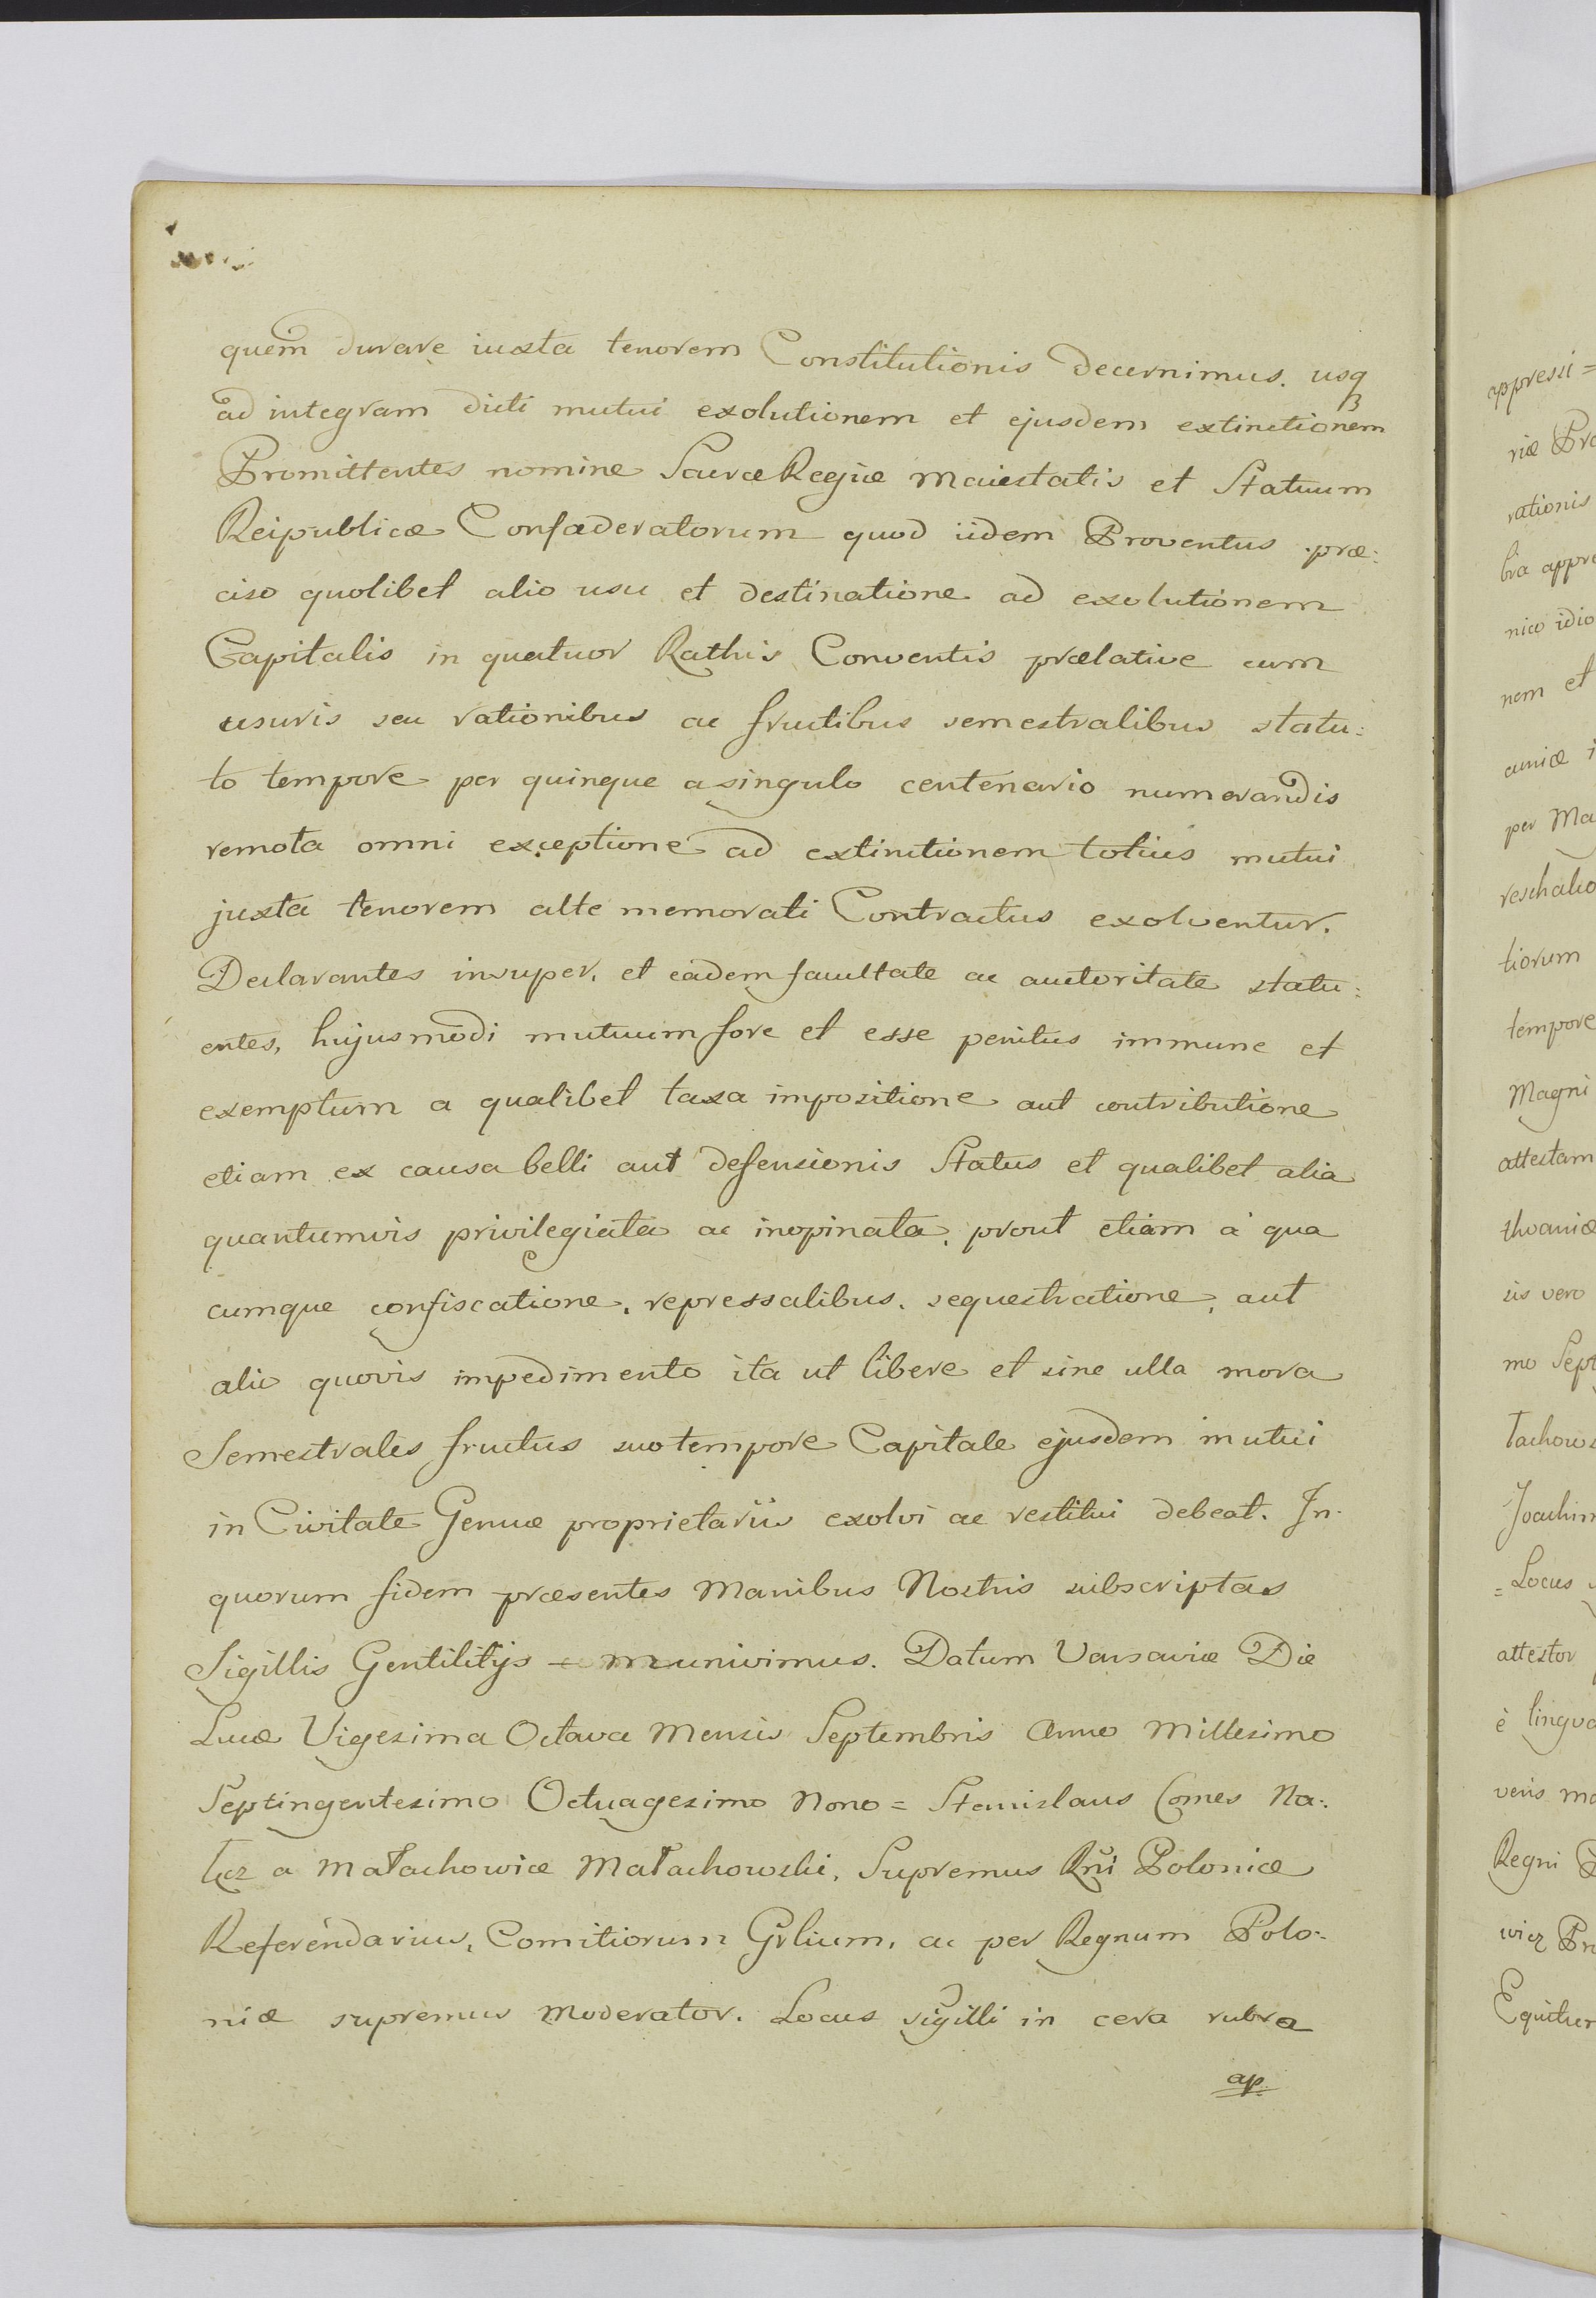 quem durare iuxta tenorem Constitutionis decernimus. usq3
ad integram dicti mutui exolutionem et ejusdem extinctionem
Promittentes nomine Sacræ Regiæ Maiestatis et Statuum
Reipublicæ Confæderatorum quod iidem Proventus præ:
ciso quolibet alio usu et destinatione ad exolutionem
Capitalis in quatuor Rathis Conventis prælative cum
usuris seu rationibus ac fructibus semestralibus statu:
to tempore per quinque a singulo centenario numerandis
remota omni exceptione ad extinctionem totius mutui
juxta tenorem alte memorati Contractus exolventur.
Declarantes insuper, et eadem facultate ac auctoritate statu:
entes, hujusmodi mutuum fore et esse penitus immune et
exemptum a qualibet taxa impositione aut contributione
etiam ex causa belli aut defensionis Status et qualibet alia
quantumvis privilegiata ac inopinata, prout etiam a qua
cumque confiscatione, repressalibus, sequestratione, aut
alio quovis impedimento ita ut libere et sine ulla mora
Semestrales fructus suo tempore Capitale ejusdem mutui
in Civitate Genuæ proprietariis exolvi ac restitui debeat. In
quorum fidem præsentes Manibus Nostris subscriptas
Sigillis Gentilitijs communivimus. Datum Varsaviæ Die
Luce Vigesima Octava Mensis Septembris Anno Millesimo
Septingentesimo Octuagesimo Nono = Stanislaus Comes Na:
łęz a Małachowice Małachowski, Supremus Rñi Poloniæ
Referendarius, Comitiorum Gr̃lium, ac per Regnum Polo:
niæ supremus Moderator. Locus sigilli in cera rubra
ap
appressi =
riæ Pro
rationis
bra appre
nico idio
nem et
cuniæ i
per Ma
reschalco
tiorum
tempore
Magni
attestam
thvaniæ
sis vero
mo Sept
łachows
Joachim
= Locus
attestor
è lingua
veris ma
Regni
wicz Pr
Equitum